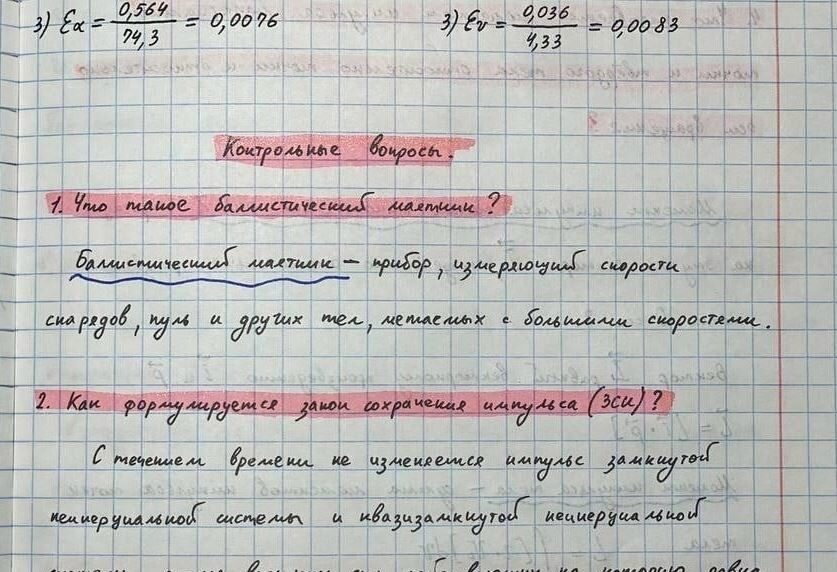 3) Eα = 0,564 / 74,3 = 0,0076
3) Ev = 0,036 / 4,33 = 0,0083
Контрольные вопросы.
1. Что такое баллистический маятник?
Баллистический маятник – прибор, измеряющий скорости
снарядов, пуль и других тел, метаемых с большими скоростями.
2. Как формулируется закон сохранения импульса (ЗСИ)?
С течением времени не изменяется импульс замкнутой
неинерциальной системы и квазизамкнутой неинерциальной